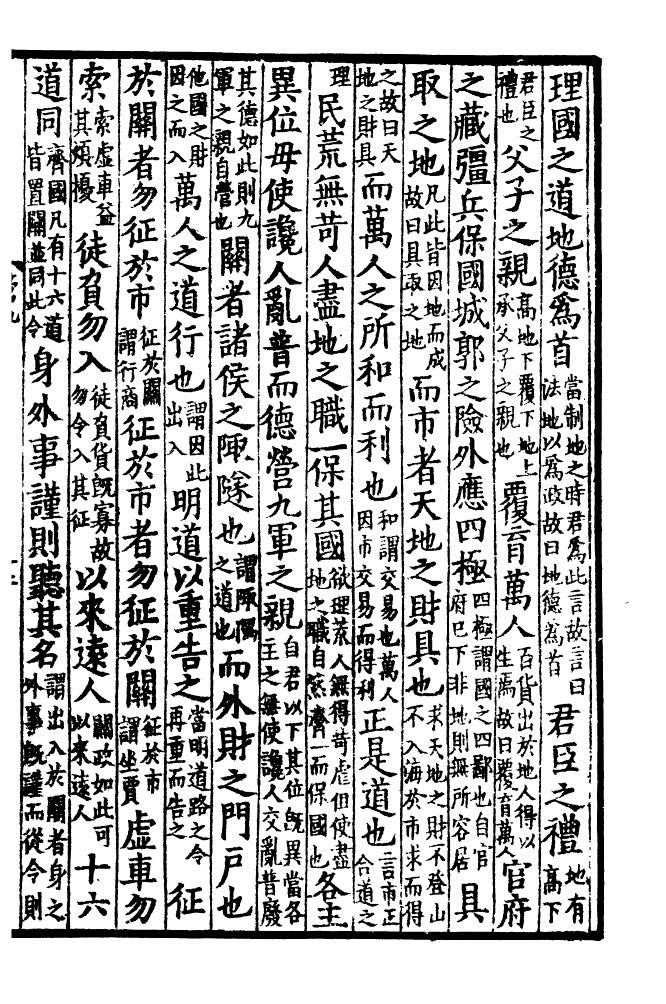 理國之道地德爲首當制地之時君爲此言故言曰法地以爲政故曰地德爲首君臣之禮地有高下
君臣之禮也父子之親高地下覆下地上承父子之親也覆育萬人百貨出於地人得以生焉故曰覆育萬人官府
之藏彊兵保國城郭之險外應四極四極謂國之四鄙也自官府已下非地則無所容居具
取之地凡此皆因地而成故曰具取之地而市者天地之財具也求天地之財不登山不入海於市求而得
之故曰天地之財具而萬人之所和而利也和謂交易也萬人因市交易而得利正是道也言市正合道之
理民荒無苛人盡地之職一保其國欲理荒人無得苛虐但使盡地之職自然齊一而保國也各主
異位毋使讒人亂普而德營九軍之親自君以下其位既異當各主之無使讒人交亂普廢
其德如此則九軍之親自營也關者諸侯之陬隧也謂陬隅之道也而外財之門戶也
他國之財因之而入萬人之道行也謂因此出入明道以重告之當明道路之令再重而告之征
於關者勿征於市征於關謂行商征於市者勿征於關征於市謂坐賈虛車勿
索索虛車益其煩擾徒負勿入徒負貨既寡故勿令入其征以來遠人關政如此可以來遠人十六
道同齊國凡有十六道皆置關並同此令身外事謹則聽其名謂出入於關者身之外事既謹而從令則